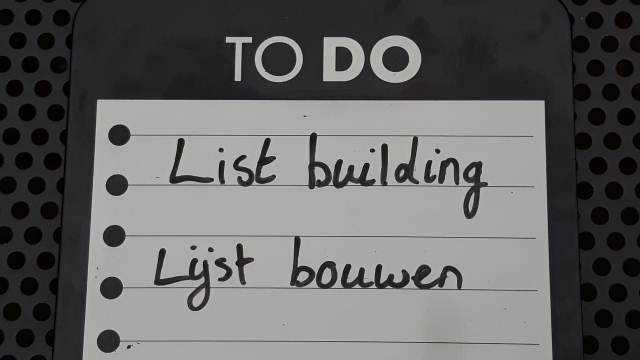 TO DO
List building
Lijst bouwen